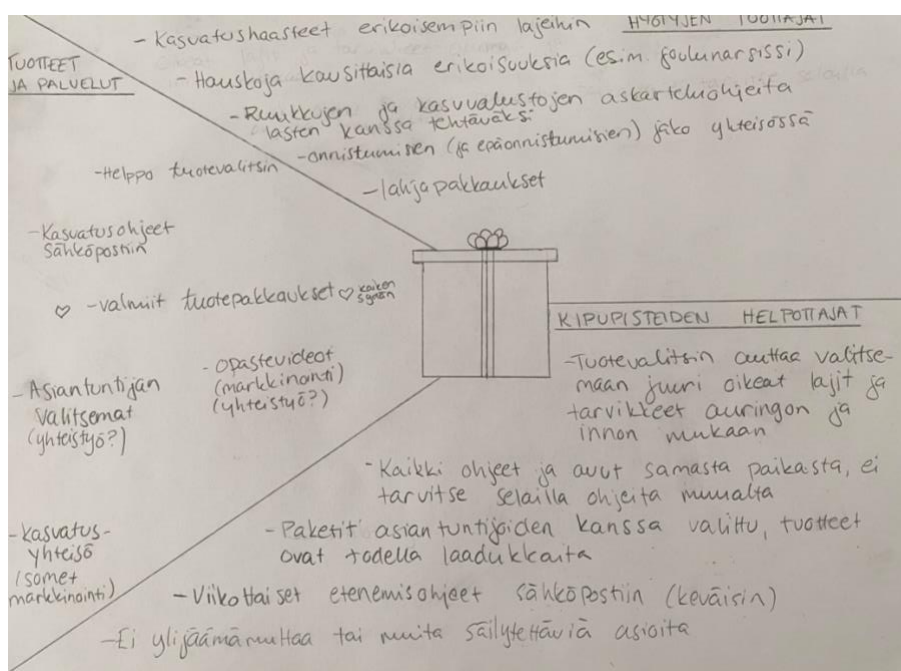 - Kasvatushaasteet erikoisempiin lajeihin
HYÖTYJEN TUOTTAJAT
- Hauskoja kausittaisia erikoisuuksia (esim. joulunarsissi)
- Ruukkujen ja kasvualustojen askarteluohjeita
lasten kanssa tehtäväksi
- onnistumisen (ja epäonnistumisien) jako yhteisössä
- lahjapakkaukset
TUOTTEET
JA PALVELUT
- Helppo tuotevalitsin
- Kasvatusohjeet
Sähköpostiin
- valmiit tuotepakkaukset
- Opastevideot
(markkinointi)
(yhteistyö?)
- Asiantuntijan
valitsemat
(yhteistyö?)
- kasvatus-
yhteisö
(some+
markkinointi)
KIPUPISTEIDEN HELPOTTAJAT
- Tuotevalitsin auttaa valitse-
maan juuri oikeat lajit ja
tarvikkeet auringon ja
innon mukaan
- Kaikki ohjeet ja avut samasta paikasta, ei
tarvitse selailla ohjeita muualta
- Paketit asiantuntijoiden kanssa valittu, tuotteet
ovat todella laadukkaita
- Viikottaiset etenemisohjeet sähköpostiin (keväisin)
- Ei ylijäämämultaa tai muita säilytettäviä asioita